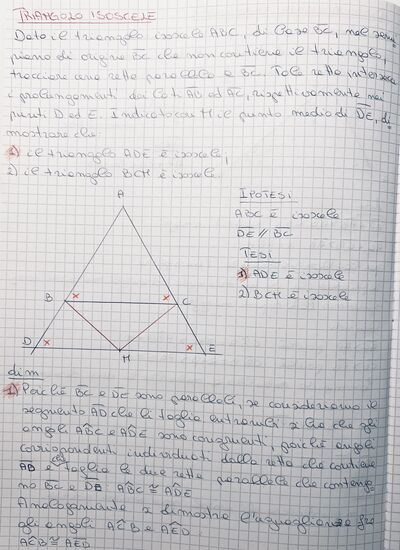 TRIANGOLO ISOSCELE
Dato il triangolo isoscele ABC, di base BC, nel semi
piano di origine BC che non contiene il triangolo,
tracciare una retta parallela a BC. Tale retta interseca
i prolungamenti dei lati AB ed AC, rispettivamente nei
punti D ed E. Indicato con M il punto medio di DE, di
mostrare che:
1) il triangolo ADE è isoscele;
2) il triangolo BCM è isoscele.
IPOTESI
ABC è isoscele
DE // BC
TESI
1) ADE è isoscele
2) BCM è isoscele
A
B x x C
D x x E
M
dim
1) Poiché BC e DE sono paralleli, se consideriamo il
segmento AD che li taglia entrambi si ha che gli
angoli ABC e ADE sono congruenti, poiché angoli
corrispondenti individuati dalla retta che contiene
AB e taglia le due rette parallele che contengo
no BC e DE ABC ≅ ADE
Analogamente si dimostra l'uguaglianza fra
gli angoli ACB e AED
ACB ≅ AED